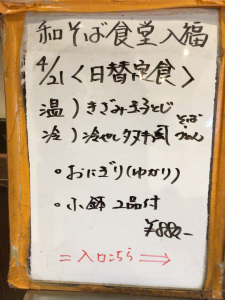 和そば食堂 入福
4/21 <日替定食>
温) きざみ玉子とじ
冷) 冷やしタヌキ風
そば
うどん
・おにぎり(ゆかり)
・小鉢 2品付
¥880-
=入口こちら⇒